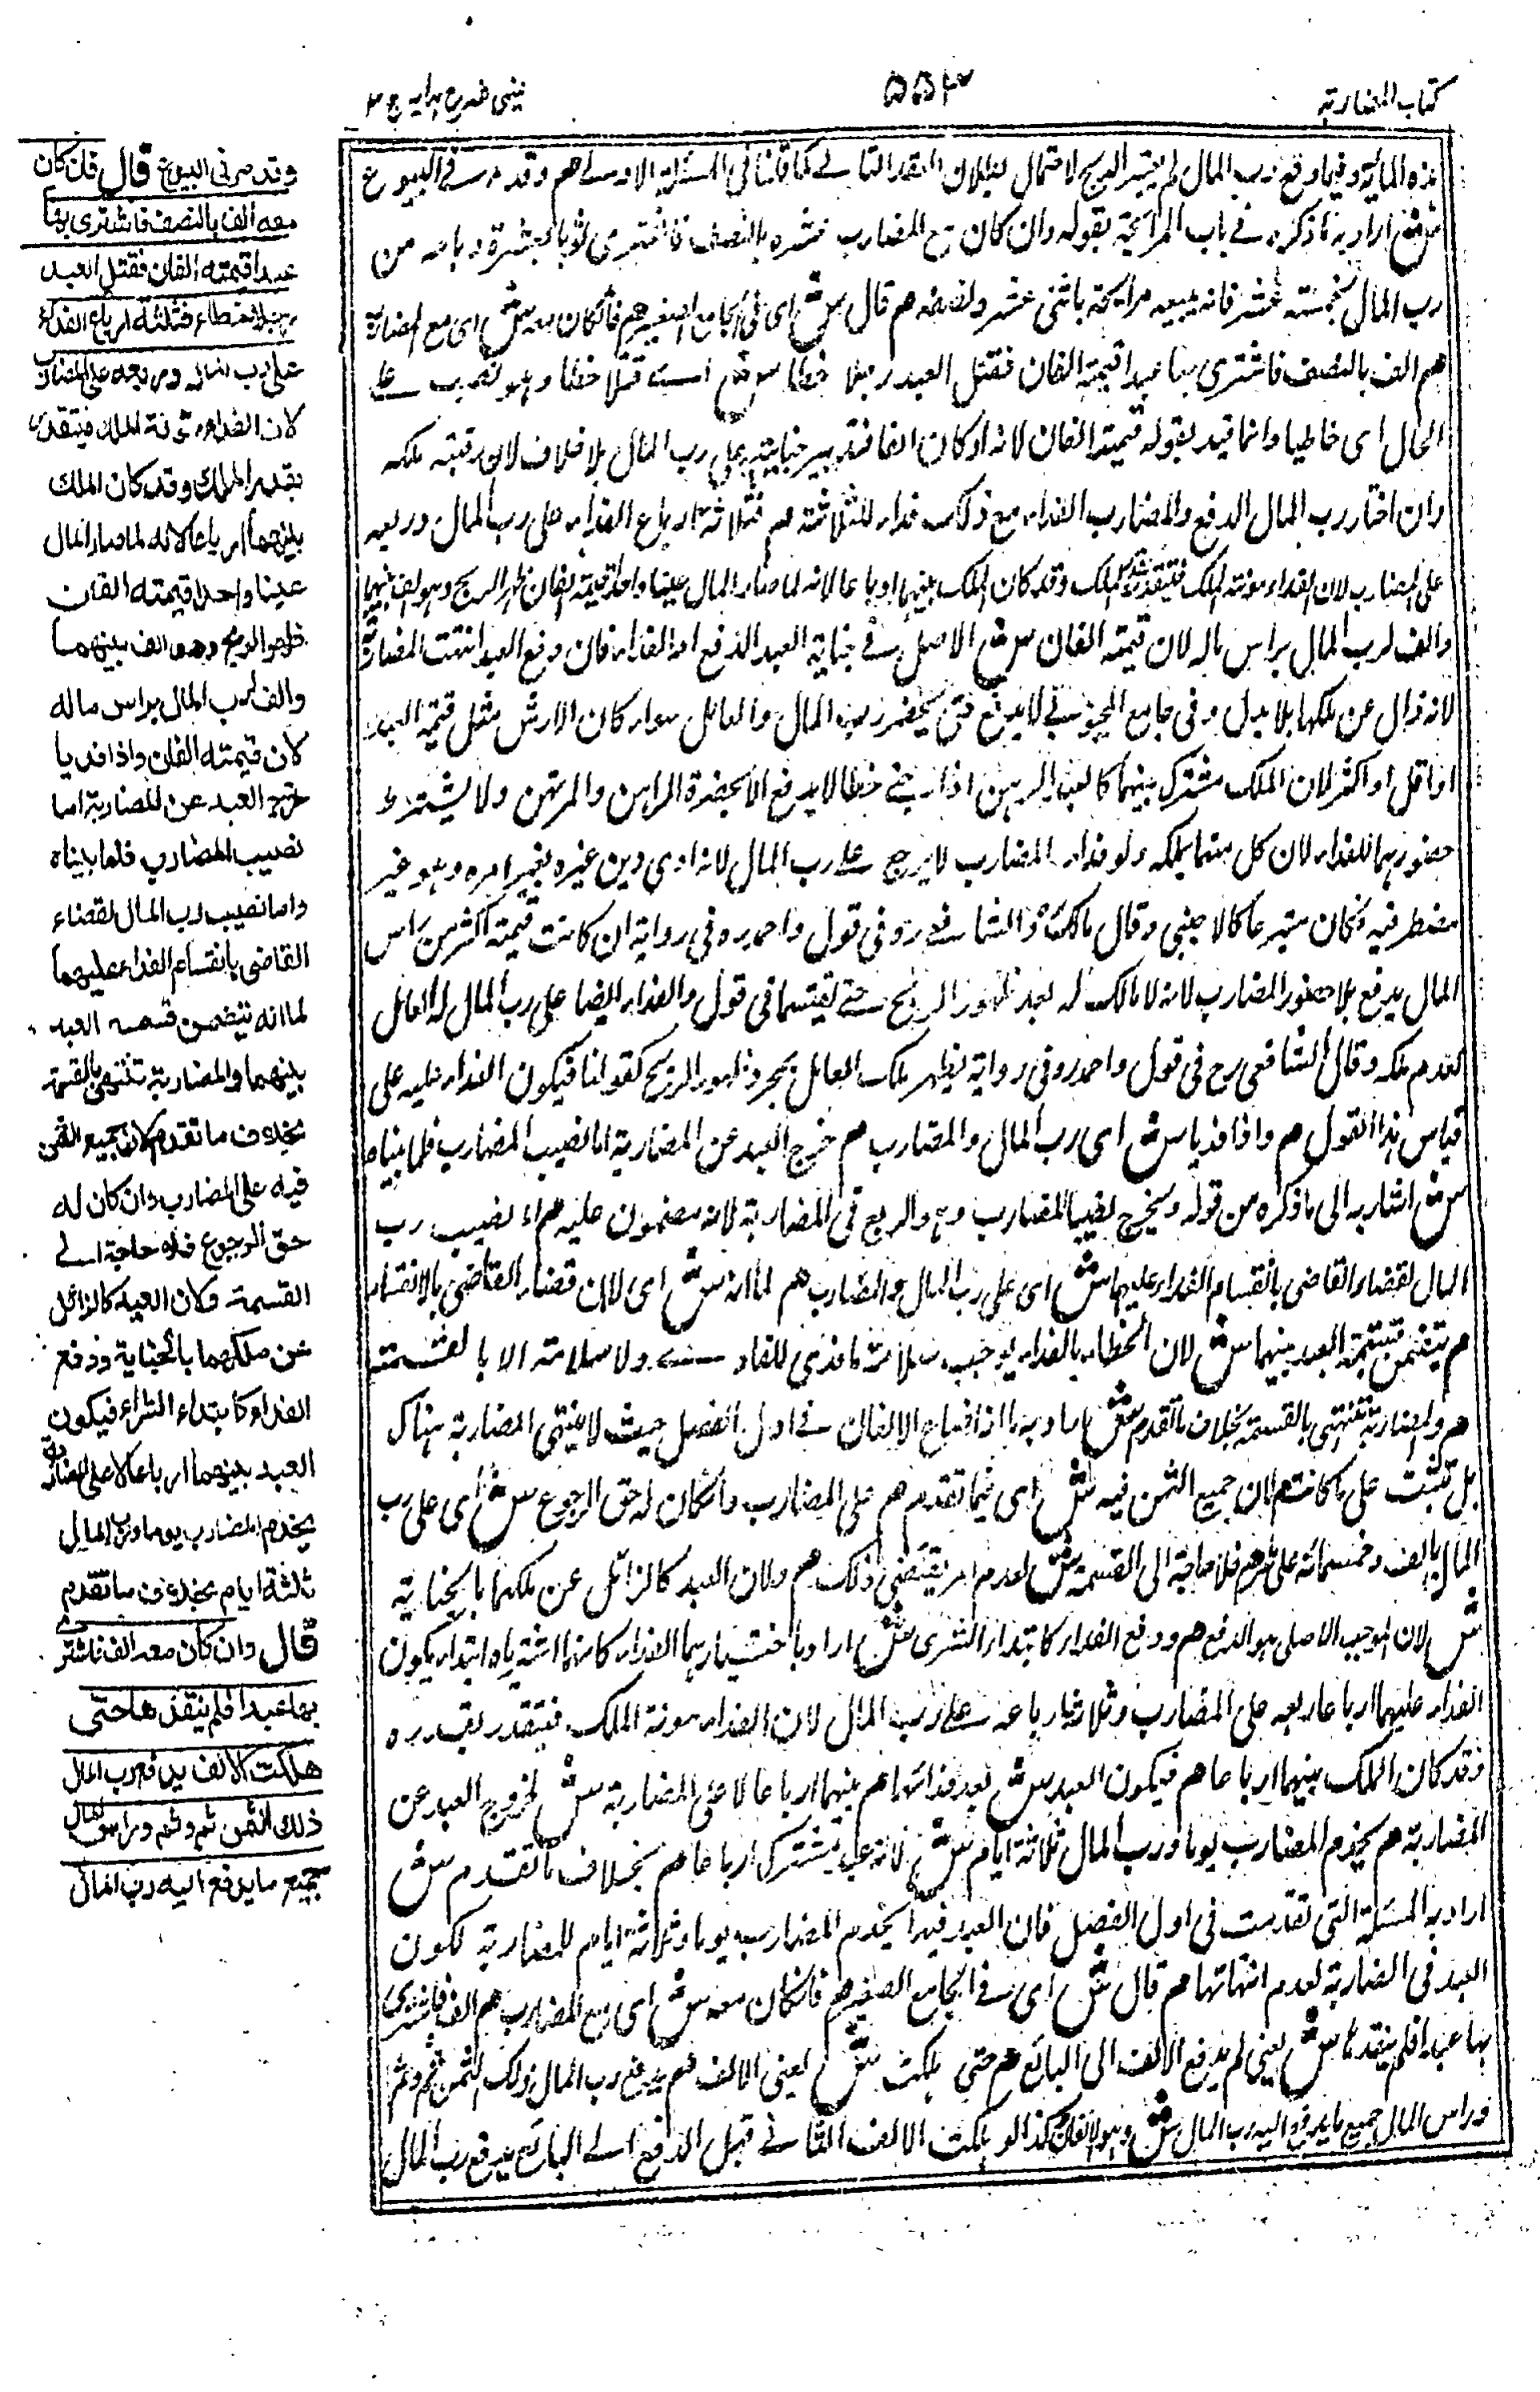 كتاب المضاربة
۵۵۴
عینی شرح ہدایہ ج ۳
هذه المائة وفيما وقع رب المال لم يعتبر الربح لاحتمال بطلان العقد الثاني كما قلنا فى المسئلة الاولى هم وقد مر فى البيوع
ش اراد به ما ذكره فى باب المرابحة بقوله وان كان مع المضارب عشرة بالنصف فاشترى ثوبا بعشرة وباعه من
رب المال بخمسة عشر فانه يبيعه مرابحة باثنى عشر ونصف هم قال ش اى فى الجامع الصغير هم فان كان معه ش اى مع المضارب
هم الف بالنصف فاشترى بها عبدا قيمته الفان فقتل العبد رجلا خطأ ش اى قتلا خطأ وهو نصب على
الحال اى خاطيا وانما قيد بقوله قيمته الفان لانه لو كان الفا فتدبير جنايته على رب المال بلا خلاف لان رقبته ملكه
وان اختار رب المال الدفع والمضارب الفداء مع ذلك فداء للثلاثة هم فثلاثة ارباع الفداء على رب المال وربعه
على المضارب لان الفداء مونة الملك فيتقدر بقدر الملك وقد كان الملك بينهما ارباعا لانه لما صار المال عينا واحدا قيمته الفان ظهر الربح وهو الف بينهما
والف لرب المال براس ماله لان قيمته الفان ش الاصل فى جناية العبد الدفع او الفداء فان دفع العبد انتهت المضاربة
لانه زال عن ملكهما بلا بدل وفى جامع المحبوبى لا يدفع حتى يحضر رب المال والعامل سواء كان الارش مثل قيمة العبد
او اقل او اكثر لان الملك مشترك بينهما كالعبد الرهن اذا جنى خطأ لا يدفع الا بحضرة الراهن والمرتهن ولا يشترط
حضورهما للفداء لان كل منهما يملكه ولو فداه المضارب لا يرجع على رب المال لانه ادى دين غيره بغير امره وهو غير
مضطر فيه فكان متبرعا كالاجنبى وقال مالك والشافعى رح فى قول واحمد رح فى رواية ان كانت قيمته اكثر من راس
المال يدفع بلا حضور المضارب لانه لا مالك له بعد ظهور الربح حتى يقتسما فى قول والفداء ايضا على رب المال لا العامل
لعدم ملكه وقال الشافعى رح فى قول واحمد رح فى رواية يظهر ملك العامل بمجرد ظهور الربح كقولنا فيكون الفداء عليه على
قياس هذا القول هم واذا فديا ش اى رب المال والمضارب هم خرج العبد عن المضاربة اما نصيب المضارب فلما بيناه
ش اشار به الى ما ذكره من قوله ويخرج نصيب المضارب وهو الربع فى المضاربة لانه مضمون عليه هم اما نصيب رب
المال لقضاء القاضى بانقسام الفداء عليهما ش اى على رب المال والمضارب هم لما انه ش اى لان قضاء القاضى بالانقسام
هم يتضمن قسمة العبد بينهما ش لان الخطاب بالفداء يوجب سلامة المفدى للفادى ولا سلامة الا بالقسمة
هم والمضاربة تنتهى بالقسمة بخلاف ما تقدم ش اراد به ما اذا ضاع الالفان فى اول الفصل حيث لا ينتهى المضاربة هناك
بل تثبت على ما كانت هم لان جميع الثمن فيه ش اى فيما تقدم هم على المضارب وان كان له حق الرجوع ش اى على رب
المال بالف وخمسمائة على هم فلا حاجة الى القسمة ش لعدم امر يقتضى ذلك هم ولان العبد كالزائل عن ملكهما بالجناية
ش لان الموجب الاصلى هو الدفع هم ودفع الفداء كابتداء الشرى ش اراد باختيارهما الفداء كانهما اشترياه ابتداء يكون
الفداء عليهما ارباعا ربعه على المضارب وثلاثة ارباعه على رب المال لان الفداء مونة الملك فيتقدر بقدره
وقد كان الملك بينهما ارباعا هم فيكون العبد ش بعد فدائهما هم بينهما ارباعا لا على المضاربة ش لخروج العبد عن
المضاربة هم يخدم المضارب يوما ورب المال ثلاثة ايام ش لانه عبد مشترك ارباعا هم بخلاف ما تقدم ش
اراد به المسئلة التى تقدمت فى اول الفصل فان العبد فيها يخدم المضارب يوما وثلاثة ايام للمضاربة لكون
العبد فى المضاربة لعدم انتهائها هم قال ش اى فى الجامع الصغير هم فان كان معه ش اى مع المضارب هم الف فاشترى
بها عبدا فلم ينقدها ش يعنى لم يدفع الالف الى البائع هم حتى هلكت ش يعنى الالف هم يدفع رب المال ذلك الثمن ثم وثم
وراس المال جميع ما يدفع اليه رب المال ش وهو الالفان كذا لو هلكت الالف الثانى قبل الدفع الى البائع يدفع رب المال
وقد مر فى البيوع قال فان كان
معه الف بالنصف فاشترى بها
عبدا قيمته الفان فقتل العبد
رجلا خطاء فثلثة ارباع الفداء
على رب المال وربعه على المضارب
لان الفداء مؤنة الملك فيتقدر
بقدر الملك وقد كان الملك
بينهما ارباعا لانه لما صار المال
عينا واحدا قيمته الفان
ظهر الربح وهو الف بينهما
والف لرب المال براس ماله
لان قيمته الفان واذا فديا
خرج العبد عن المضاربة اما
نصيب المضارب فلما بيناه
واما نصيب رب المال لقضاء
القاضى بانقسام الفداء عليهما
لما انه يتضمن قسمة العبد
بينهما والمضاربة تنتهى بالقسمة
بخلاف ما تقدم لان جميع الثمن
فيه على المضارب وان كان له
حق الرجوع فلا حاجة الى
القسمة ولان العبد كالزائل
عن ملكهما بالجناية ودفع
الفداء كابتداء الشراء فيكون
العبد بينهما ارباعا لا على المضاربة
يخدم المضارب يوما ورب المال
ثلثة ايام بخلاف ما تقدم
قال وان كان معه الف فاشترى
بها عبدا فلم ينقدها حتى
هلكت الالف يدفع رب المال
ذلك الثمن ثم وثم وراس المال
جميع ما يدفع اليه رب المال